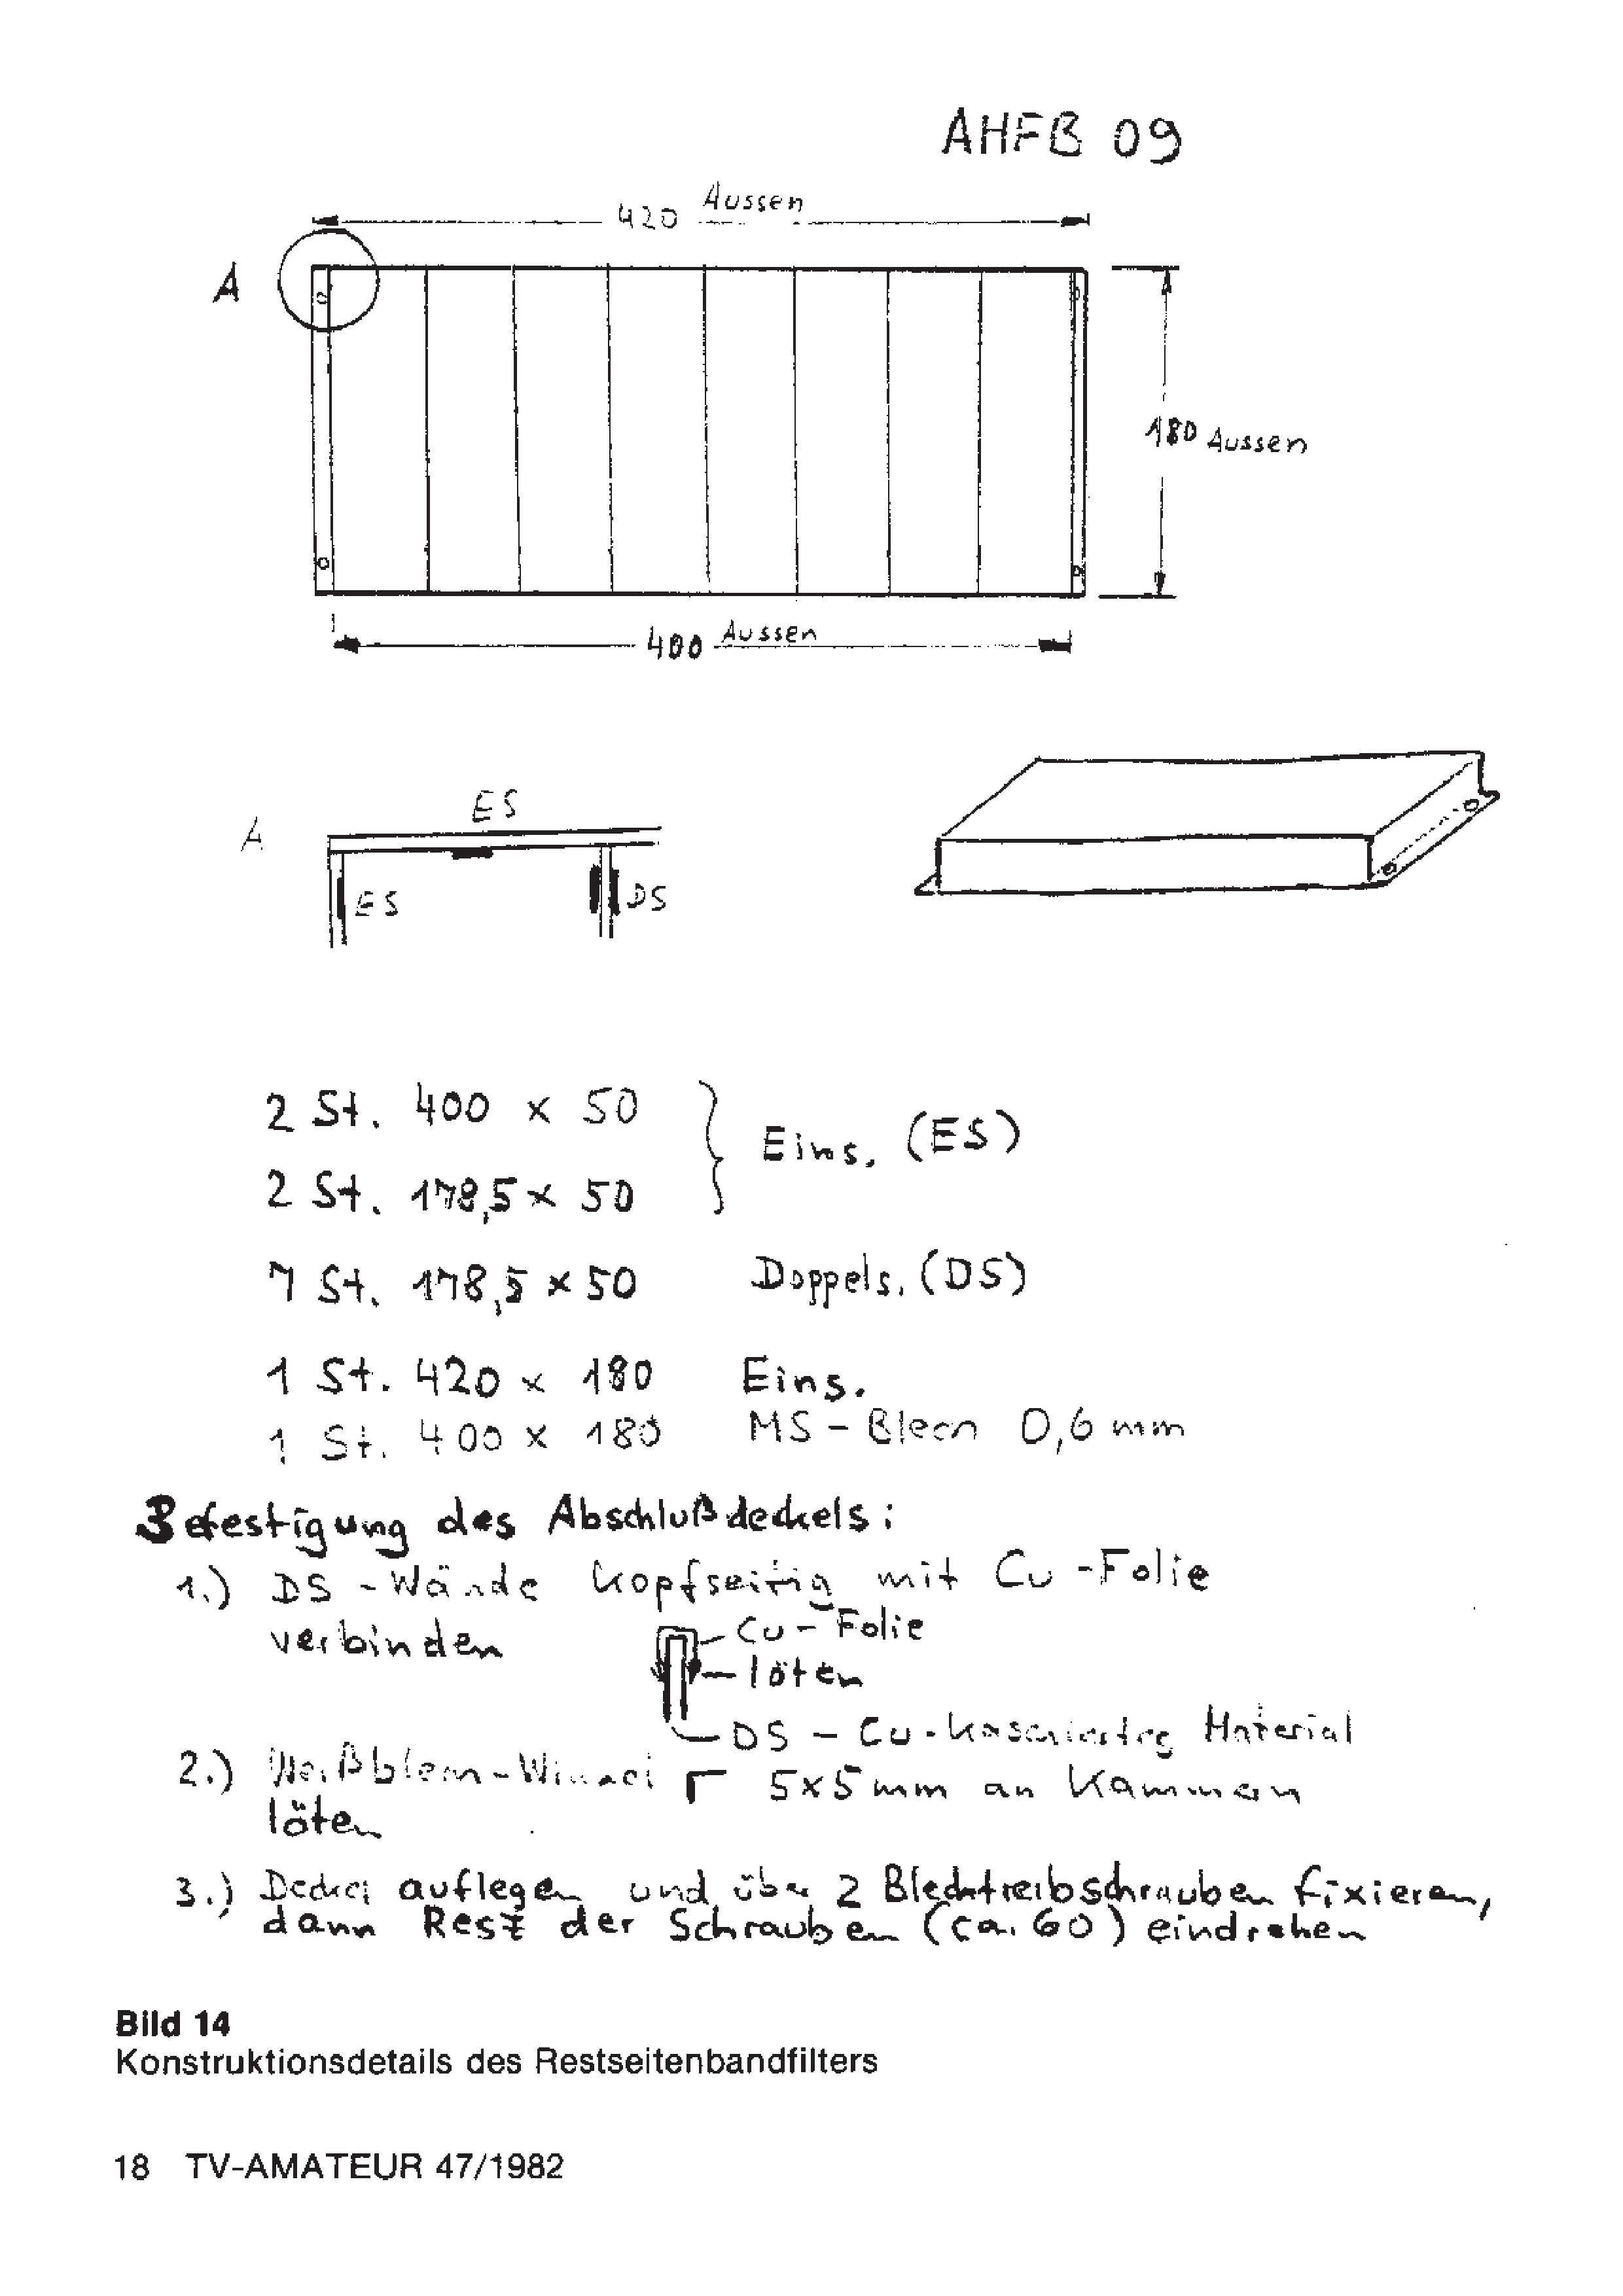 AHFB 09
420 Aussen
A
180 Aussen
400 Aussen
A
ES
ES
DS
2 St. 400 x 50
Eins. (ES)
2 St. 178,5 x 50
7 St. 178,5 x 50 Doppels. (DS)
1 St. 420 x 180 Eins.
1 St. 400 x 180 MS - Blech 0,6 mm
Befestigung des Abschlußdeckels:
1.) DS - Wände kopfseitig mit Cu - Folie
verbinden
Cu - Folie
löten
DS - Cu - kaschiertes Material
2.) Weißblech - Winkel 5x5 mm an Kammern
löten
3.) Deckel auflegen und über 2 Blechtreibschrauben fixieren,
dann Rest der Schrauben (ca. 60) eindrehen
Bild 14
Konstruktionsdetails des Restseitenbandfilters
18 TV-AMATEUR 47/1982